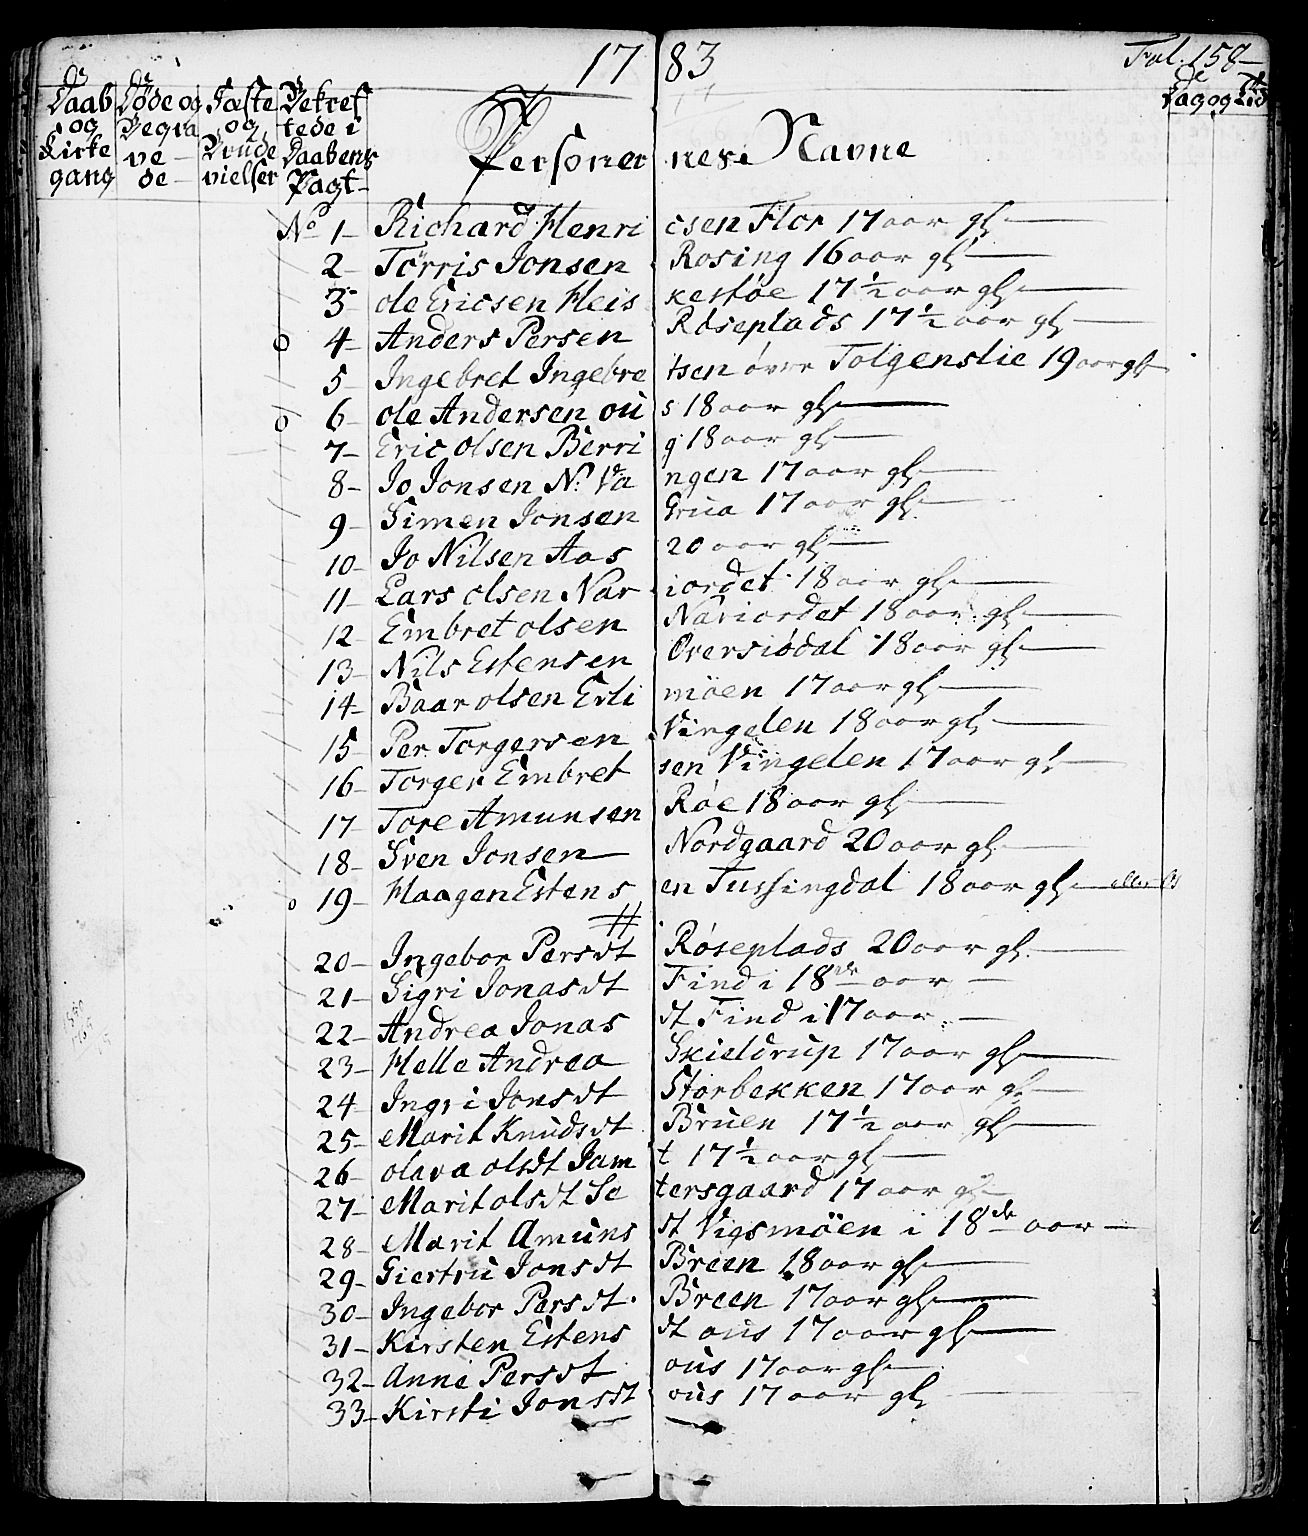 1783 Fol. 158
Daab og Kirke gang
Døde og Begra ve de
Fæste og Brude vielser
Bekref tede i Daabens Pagt
Personernes Navne
Dag og Tid
No 1 Richard Henricsen Flor 17 aar gl.
2 Torris Jonsen Rosing 16 aar gl.
3 ole Ericsen Heiskestøe 17 1/2 aar gl.
o 4 Anders Persen Røseplads 17 1/2 aar gl.
5 Ingebret Ingebretsen øvre Tolgenslie 19 aar gl.
o 6 ole Andersen ous 18 aar gl.
7 Eric olsen Berrig 18 aar gl.
8 Jo Jonsen N. Vangen 17 aar gl.
9 Simen Jonsen Grua 17 aar gl.
10 Jo Nilsen Aas 20 aar gl.
11 Lars olsen Nariordet 18 aar gl.
12 Embret olsen Nariordet 18 aar gl.
13 Nils Estensen Oversiødal 18 aar gl.
14 Baar olsen Erlimöen 17 aar gl.
15 Per Torgersen Vingelen 18 aar gl.
16 Torger Embretsen Vingelen 17 aar gl.
17 Tore Amunsen Røe 18 aar gl.
18 Sven Jonsen Nordgaard 20 aar gl.
o 19 Haagen Estensen Tussingdal 18 aar gl. eller
20 Ingebor Persdt Røseplads 20 aar gl.
21 Sigri Jonasdt Find i 18de aar
22 Andrea Jonasdt Find i 17 aar
23 Helle Andrea Skieldrup 17 aar gl.
24 Ingri Jonsdt Storbekken 17 aar gl.
25 Marit Knudsdt Bruen 17 1/2 aar gl.
26 olava olsdt Jamt 17 1/2 aar gl.
27 Marit olsdt Setersgaard 17 aar gl.
28 Marit Amunsdt Vigsmöen i 18de aar
29 Giertru Jonsdt Breen 18 aar gl.
30 Ingebor Persdt. Breen 17 aar gl.
31 Kirsten Estensdt ous 17 aar gl.
32 Anne Persdt ous 17 aar gl.
33 Kirsti Jonsdt ous 17 aar gl.